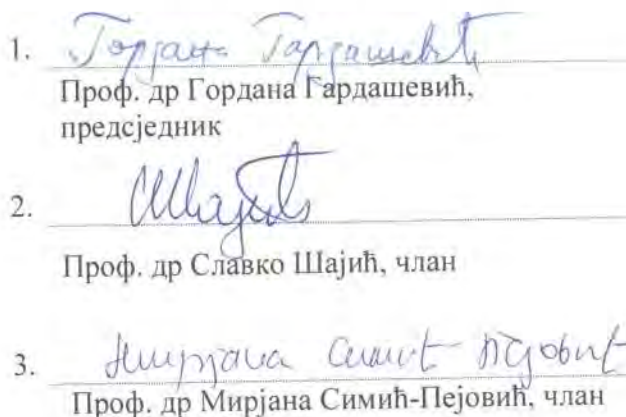 1. Гордана Гардашевић
Проф. др Гордана Гардашевић,
предсједник
2. СШајић
Проф. др Славко Шајић, члан
3. Мирјана Симић Пејовић
Проф. др Мирјана Симић-Пејовић, члан